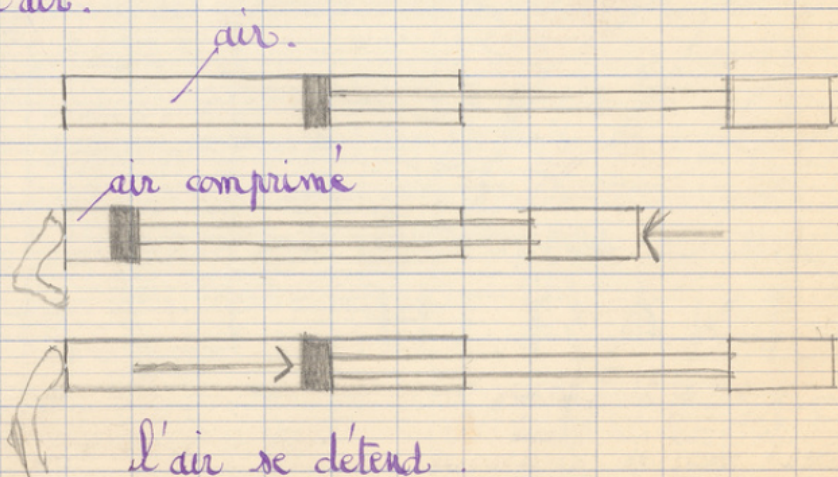 air.
air.
air comprimé
l'air se détend.